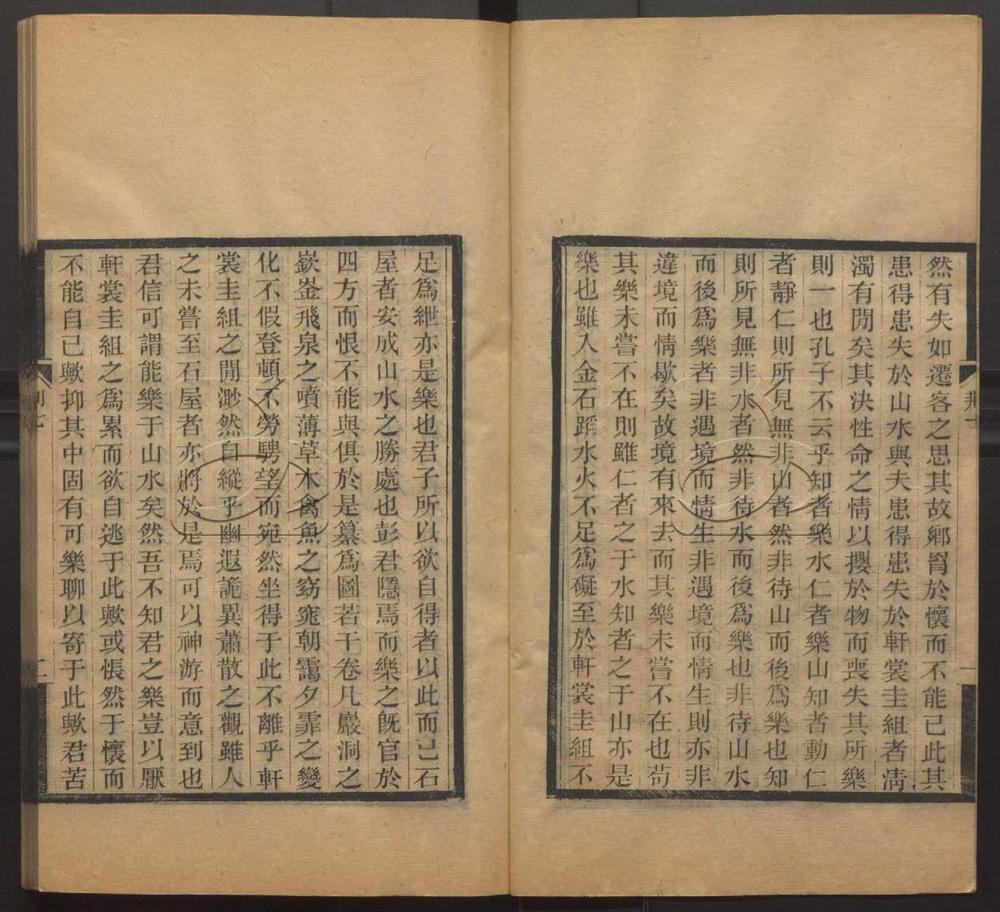 然有失如遷客之思其故鄉窅於懷而不能已此其
患得患失於山水與夫患得患失於軒裳圭組者淸
濁有閒矣其決性命之情以攖於物而喪失其所樂
則一也孔子不云乎知者樂水仁者樂山知者動仁
者靜仁則所見無非山者然非待山而後爲樂也知
則所見無非水者然非待水而後爲樂也非待山水
而後爲樂者非遇境而情生非遇境而情生則亦非
違境而情歇矣故境有來去而其樂未嘗不在也苟
其樂未嘗不在則雖仁者之于水知者之于山亦是
樂也雖入金石蹈水火不足爲礙至於軒裳圭組不
足爲紲亦是樂也君子所以欲自得者以此而已石
屋者安成山水之勝處也彭君隱焉而樂之旣官於
四方而恨不能與俱於是纂爲圖若干卷凡巖洞之
嶔崟飛泉之噴薄草木禽魚之窈窕朝靄夕霏之變
化不假登頓不勞騁望而宛然坐得于此不離乎軒
裳圭組之閒渺然自縱乎幽遐詭異蕭散之觀雖人
之未嘗至石屋者亦將於是焉可以神游而意到也
君信可謂能樂于山水矣然吾不知君之樂豈以厭
軒裳圭組之爲累而欲自逃于此歟或悵然于懷而
不能自已歟抑其中固有可樂聊以寄于此歟君苦
二